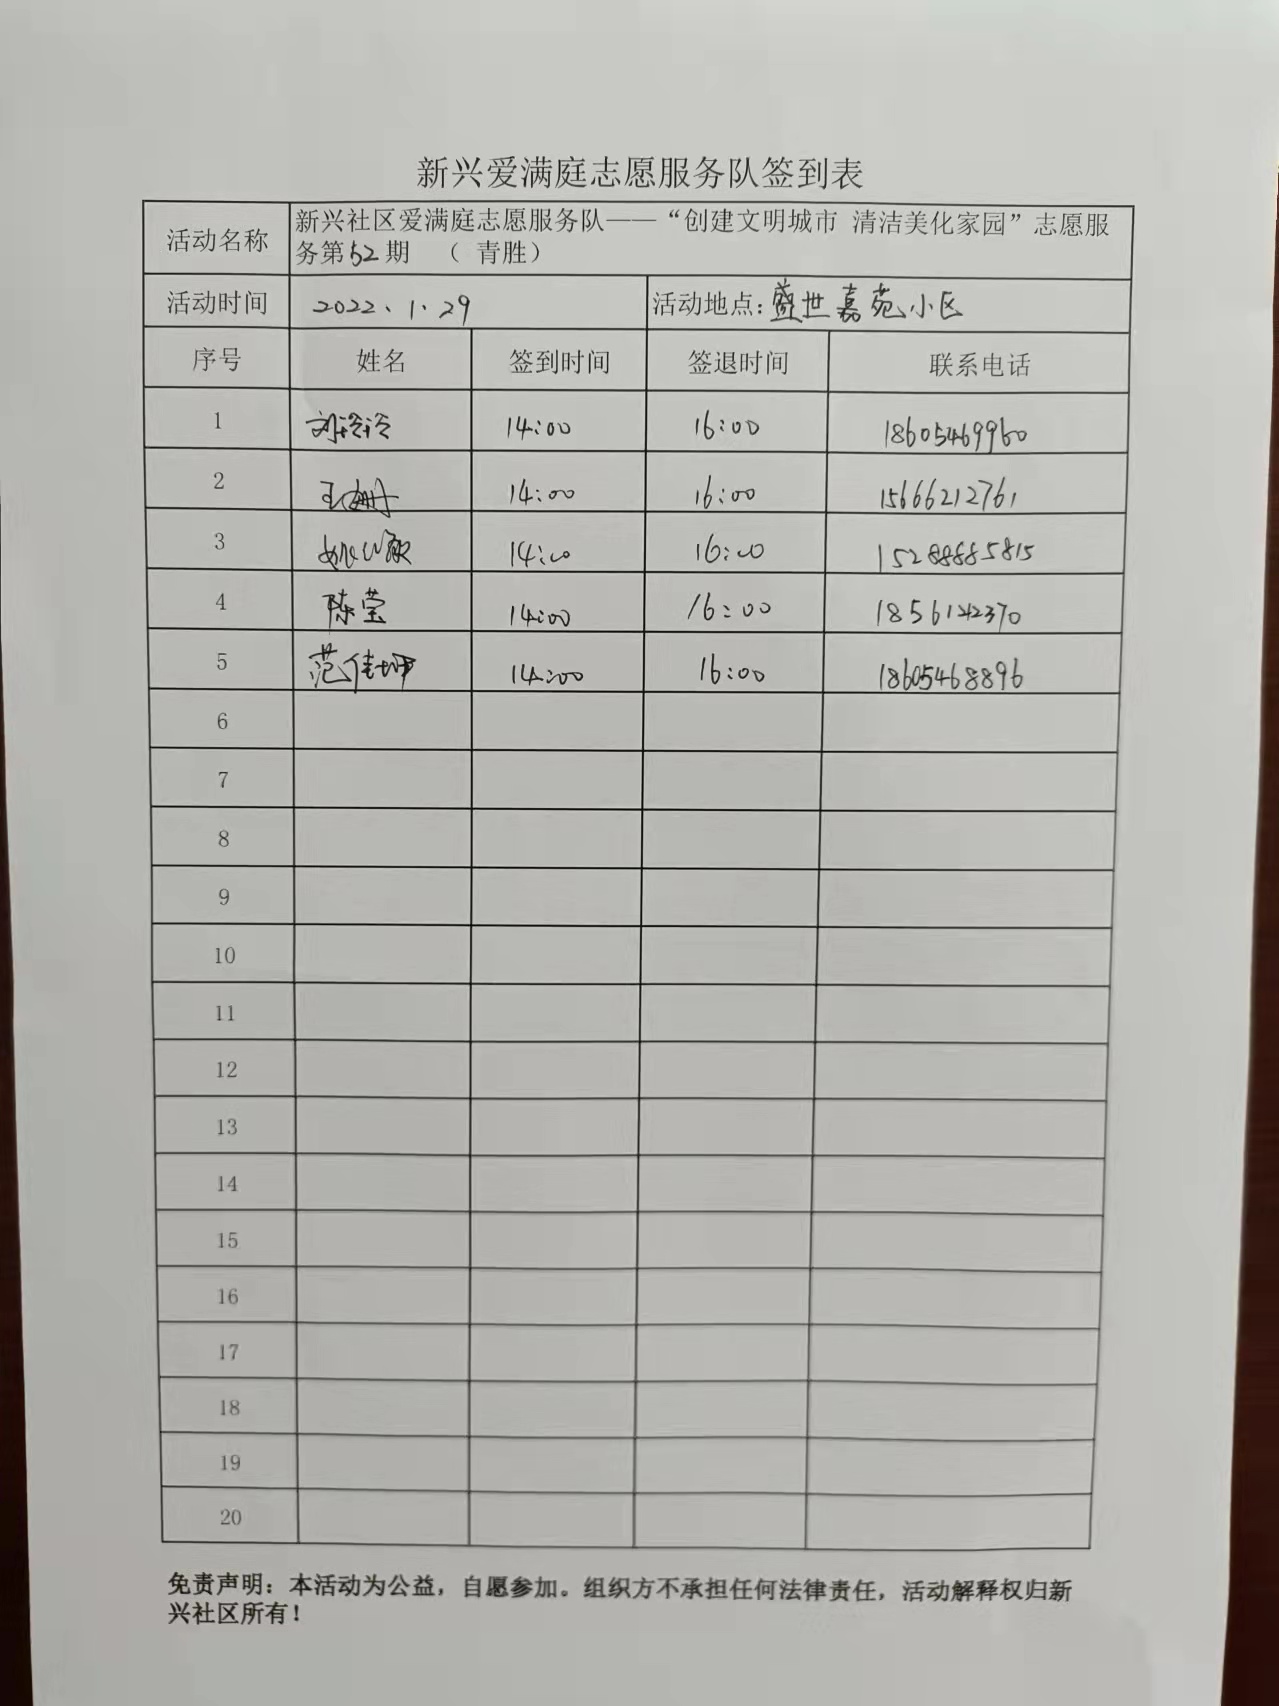 新兴爱满庭志愿服务队签到表
活动名称 新兴社区爱满庭志愿服务队——“创建文明城市 清洁美化家园”志愿服
务第52期 （ 青胜）
活动时间 2022.1.29 活动地点：盛世嘉苑小区
序号 姓名 签到时间 签退时间 联系电话
1 刘玲玲 14:00 16:00 18605469960
2 王姗 14:00 16:00 15666212761
3 14:00 16:00 15288885815
4 陈莹 14:00 16:00 1856142370
5 范佳坤 14:00 16:00 18605468896
6
7
8
9
10
11
12
13
14
15
16
17
18
19
20
免责声明：本活动为公益，自愿参加。组织方不承担任何法律责任，活动解释权归新
兴社区所有！